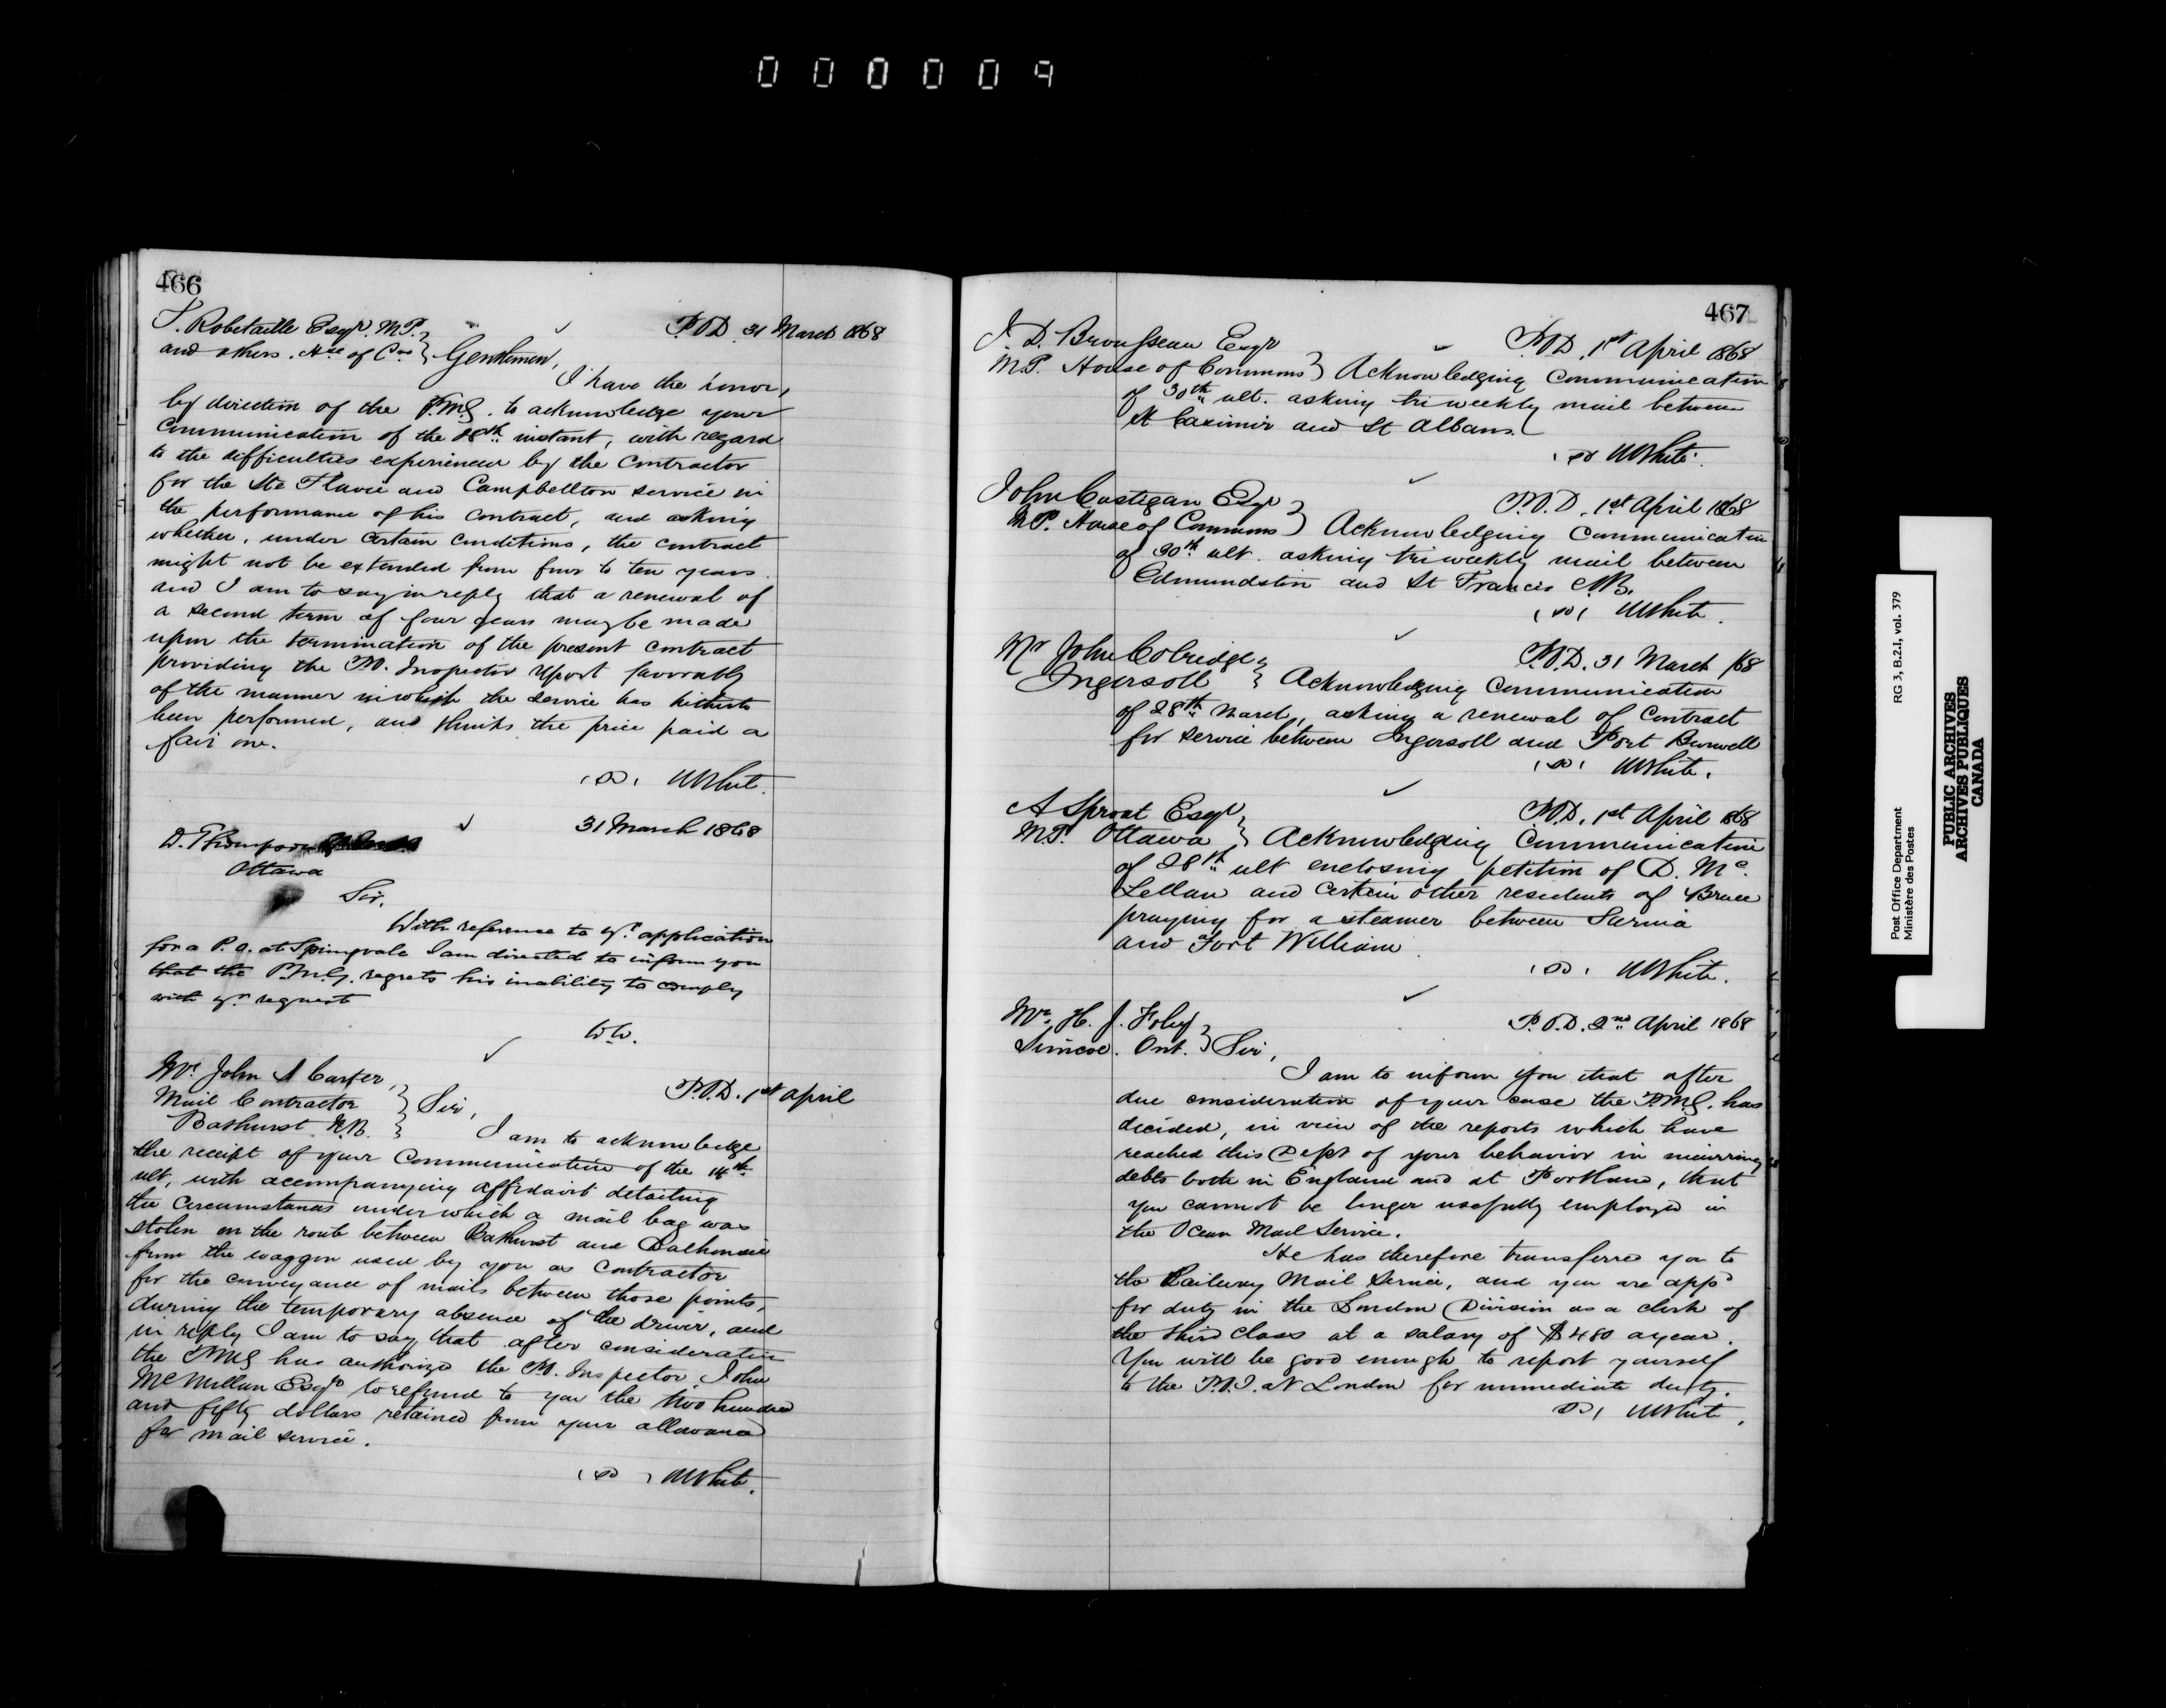 000009
466
T. Robitaille Esqr. M.P.
and others. Hse of Cns } Gentlemen,
P.O.D. 31 March 1868
I have the honor,
by direction of the P.M.G. to acknowledge your
Communication of the 28th instant, with regard
to the difficulties experienced by the Contractor
for the Ste Flavie and Campbellton service in
the performance of his contract, and asking
whether, under certain conditions, the contract
might not be extended from four to ten years
and I am to say in reply that a renewal of
a second term of four years may be made
upon the termination of the present contract
providing the P.O. Inspector report favorably
of the manner in which the service has hitherto
been performed, and thinks the price paid a
fair one.
(sd) W White.
D. Thompson
Ottawa
31 March 1868
Sir,
With reference to yr. application
for a P.O. at Springvale I am directed to inform you
that the P.M.G. regrets his inability to comply
with yr. request
W.W.
Mr. John A Carter,
Mail Contractor } Sir,
Bathurst N.B.
P.O.D. 1st April
I am to acknowledge
the receipt of your Communication of the 14th
ult, with accompanying affidavit detailing
the circumstances under which a mail bag was
stolen on the route between Bathurst and Dalhousie
from the waggon used by you as Contractor
for the conveyance of mails between those points,
during the temporary absence of the driver, and
in reply I am to say that after consideration
the P.M.G has authorized the P.O. Inspector John
McMillan Esqr to refund to you the two hundred
and fifty dollars retained from your allowance
for mail service.
(sd) W White.
467
J. D. Brousseau Esqr
P.O.D. 1st April 1868
M.P. House of Commons } Acknowledging Communication
of 30th ult. asking tri weekly mail between
St Casimir and St Albans.
(sd) W White.
John Costigan Esqr
P.O.D. 1st April 1868
M.P. House of Commons } Acknowledging Communication
of 30th ult. asking tri weekly mail between
Edmundston and St Francis N.B.
(sd) W White.
Mr John Cobridge
P.O.D. 31 March /68
Ingersoll } Acknowledging Communication
of 28th March, asking a renewal of contract
for service between Ingersoll and Port Burwell
(sd) W White.
A Sproat Esqr
P.O.D. 1st April 1868
M.P. Ottawa } Acknowledging Communication
of 28th ult enclosing petition of D. Mc
Lellan and certain other residents of Bruce
praying for a steamer between Sarnia
and Fort William.
(sd) W White.
Mr. H. J. Foley
P.O.D. 2nd April 1868
Simcoe. Ont. } Sir,
I am to inform you that after
due consideration of your case the P.M.G. has
decided, in view of the reports which have
reached this Dept of your behavior in incurring
debts both in England and at Portland, that
you cannot be longer usefully employed in
the Ocean Mail Service.
He has therefore transferred you to
the Railway Mail Service, and you are appd
for duty in the London Division as a clerk of
the third class at a salary of $480 a year.
You will be good enough to report yourself
to the P.O.I. at London for immediate duty.
(sd) W White.
Post Office Department RG 3, B.2.1, vol. 379
Ministère des Postes
PUBLIC ARCHIVES
ARCHIVES PUBLIQUES
CANADA